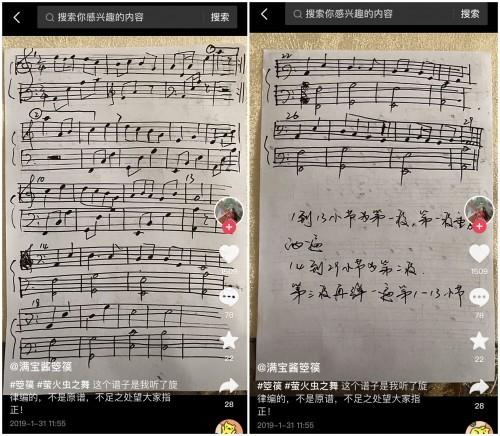 搜索你感兴趣的内容 搜索
②
7
10
13
14
18
1509
78
22
28
@满宝酱箜篌
#箜篌 #萤火虫之舞 这个谱子是我听了旋
律编的，不是原谱，不足之处望大家指
正！
2019-1-31 11:55
搜索你感兴趣的内容 搜索
22
26
29
1到13小节为第一段，第一段重复
两遍
14到29小节为第二段.
第二段再弹一遍第1-13小节
1509
78
22
28
@满宝酱箜篌
#箜篌 #萤火虫之舞 这个谱子是我听了旋
律编的，不是原谱，不足之处望大家指
正！
2019-1-31 11:55